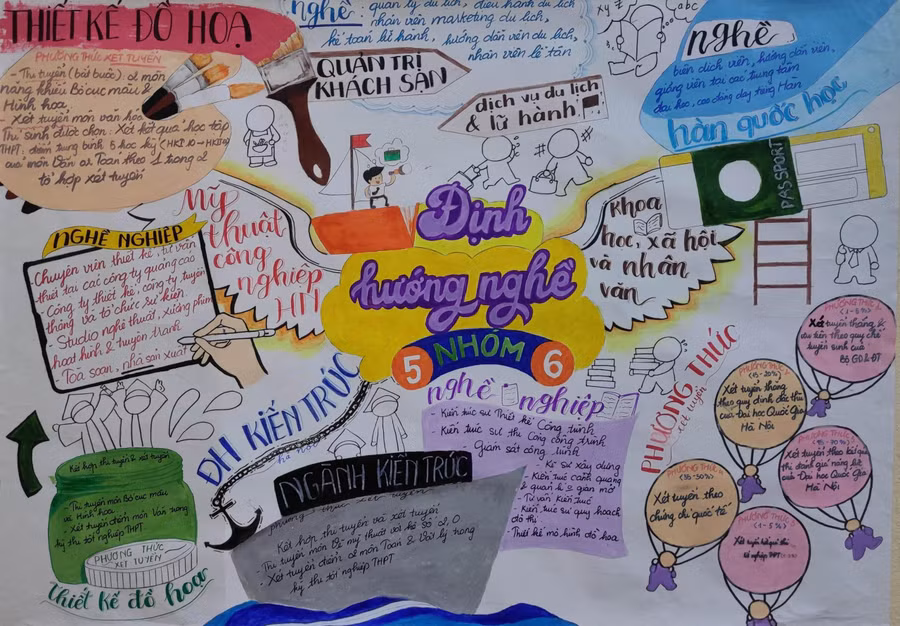 THIẾT KẾ ĐỒ HỌA
PHƯƠNG THỨC XÉT TUYỂN
- Thi tuyển (bắt buộc): 2 môn
năng khiếu Bố cục màu &
Hình họa
- Xét tuyển môn văn hóa
Thí sinh được chọn: Xét kết quả học tập
THPT: điểm trung bình 5 học kỳ (HKI 10 → HKI 12)
của môn Văn or Toán theo 1 trong 2
tổ hợp xét tuyển
nghề:
quản lý du lịch, điều hành du lịch
nhân viên marketing du lịch,
kế toán lữ hành, hướng dẫn viên du lịch,
nhân viên lễ tân
QUẢN TRỊ
KHÁCH SẠN
dịch vụ du lịch
& lữ hành
abc
nghề
biên dịch viên, hướng dẫn viên,
giảng viên tại các trung tâm
đại học, cao đẳng dạy tiếng Hàn
hàn quốc học
PASSPORT
Mỹ
thuật
công
nghiệp
HN
Định
hướng nghề
5 NHÓM 6
khoa
học, xã hội
và nhân
văn
NGHỀ NGHIỆP
- Chuyên viên thiết kế, tư vấn
thiết tại các công ty quảng cáo
- Công ty thiết kế, công ty truyền
thông và tổ chức sự kiện
- Studio nghệ thuật, xưởng phim
hoạt hình & truyện tranh
- Tòa soạn, nhà sản xuất
ĐH KIẾN TRÚC
hà nội
NGÀNH KIẾN TRÚC
phương thức xét tuyển
Kết hợp thi tuyển và xét tuyển
- Xét tuyển điểm 2 môn Toán & Vật lý trong
kỳ thi tốt nghiệp THPT
nghề nghiệp
- Kiến trúc sư Thiết kế Công trình
- Kiến trúc sư thi công công trình
- Giám sát công trình
- Kĩ sư xây dựng
- Kiến trúc Cảnh quang
- Tư vấn Kiến trúc
- Kiến trúc sư quy hoạch
đô thị
- Thiết kế mô hình đồ họa
Kết hợp thi tuyển & xét tuyển
Thi tuyển môn Bố cục màu
và Hình họa
Xét tuyển điểm môn Văn trong
kỳ thi tốt nghiệp THPT
PHƯƠNG THỨC
XÉT TUYỂN
thiết kế đồ họa
PHƯƠNG THỨC
xét tuyển
PHƯƠNG THỨC 1
(1-5%)
Xét tuyển thẳng &
ưu tiên theo quy chế
tuyển sinh của
Bộ GD&ĐT
(15-20%)
Xét tuyển thẳng
theo quy định đặc thù
của Đại học Quốc Gia
Hà Nội
Xét tuyển theo kết quả
thi đánh giá năng lực
của Đại học Quốc Gia
Hà Nội
PHƯƠNG THỨC 4
(35-50%)
Xét tuyển theo
chứng chỉ quốc tế
PHƯƠNG THỨC 5
(1-5%)
Xét tuyển kết quả thi
tốt nghiệp THPT